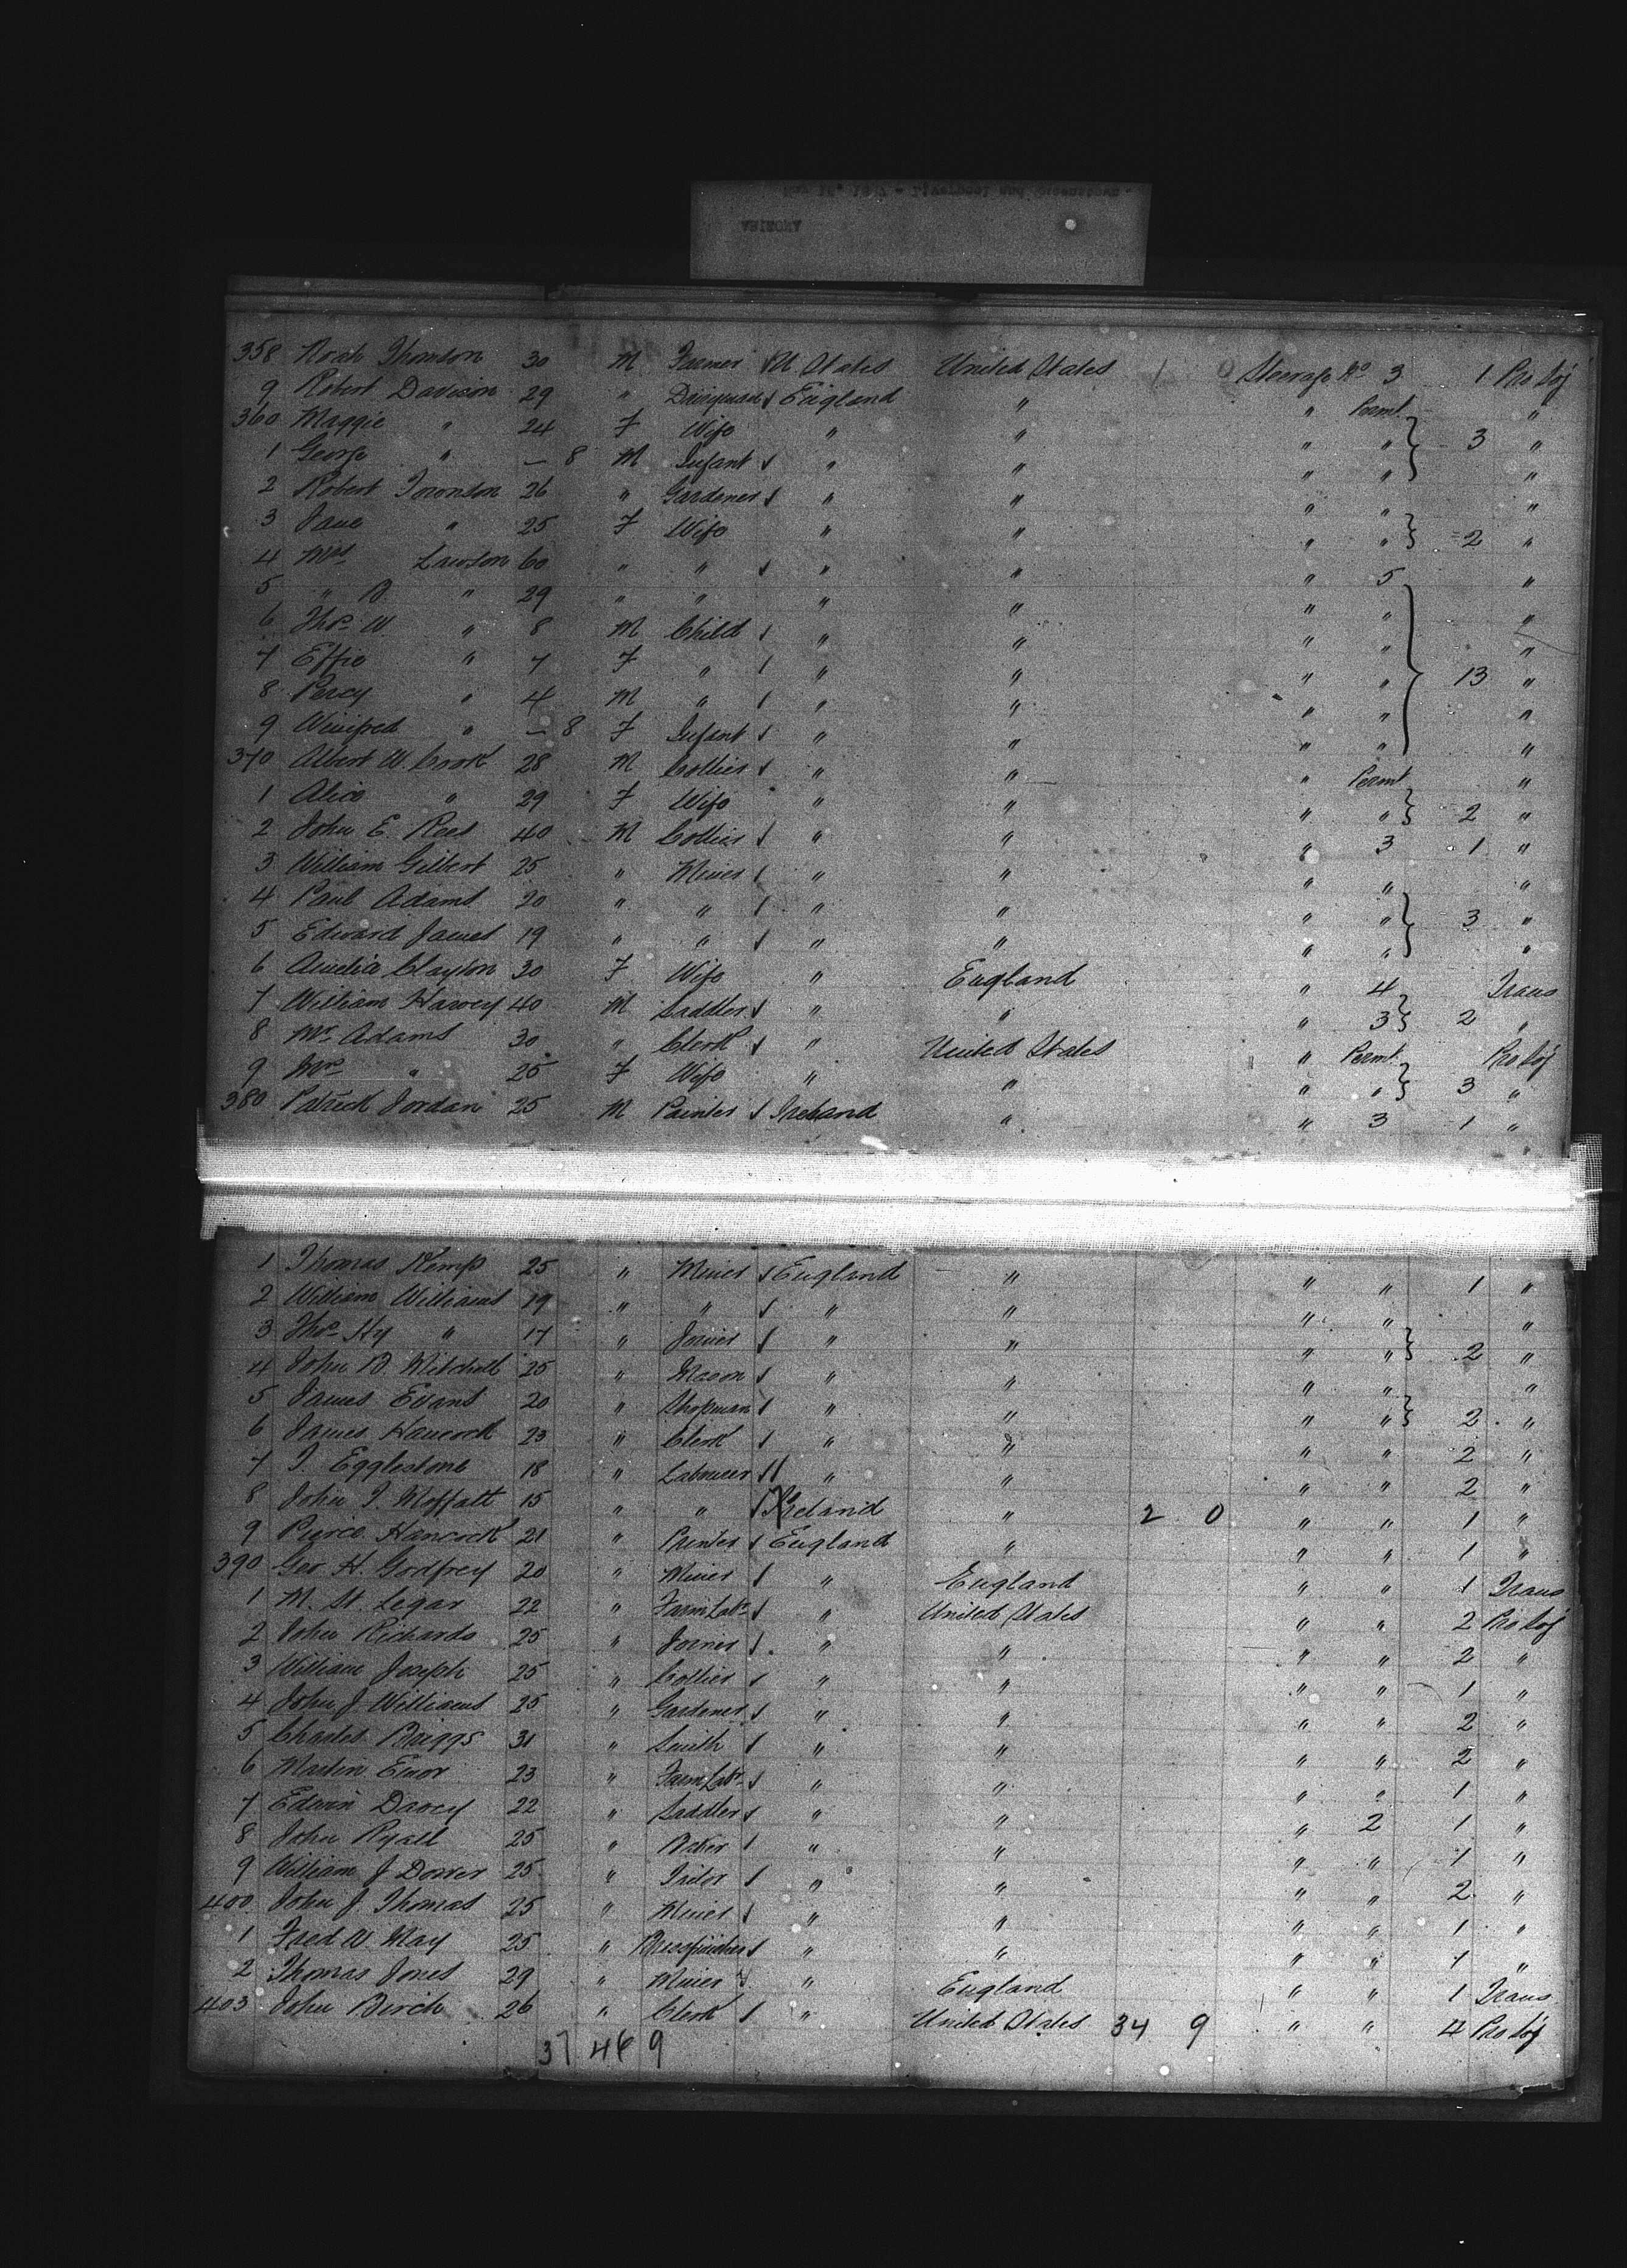 358 Noah Thomson 30 M Farmer U. States United States 1 0 Steerage No 3 1 Pro Soj
9 Robert Davison 29 " Dairyman England " " Permt "
360 Maggie " 24 F Wife " " " " 3 "
1 George " — 8 M Infant " " " " "
2 Robert Ironson 26 " Gardener " " " " "
3 Jane " 25 F Wife " " " " 2 "
4 Mrs Lawson 60 " " " " " 5 "
5 " B " 29 " " " " " " "
6 Thos W. " 8 M Child " " " " "
7 Effie " 7 F " " " " " 13 "
8 Percy " 4 M " " " " " "
9 Winifred " — 8 F Infant " " " " "
370 Albert W. Cook 28 M Collier " " " Permt "
1 Alice " 29 F Wife " " " " 2 "
2 John E. Rees 40 M Collier " " " 3 1 "
3 William Gilbert 25 " Miner " " " " "
4 Paul Adams 20 " " " " " " 3 "
5 Edward James 19 " " " " " " "
6 Amelia Clayton 30 F Wife " England " 4 Trans
7 William Harvey 40 M Saddler " " " 3 2 "
8 Mr Adams 30 " Clerk " United States " Permt Pro Soj
9 Mrs " 25 F Wife " " " " 3 "
380 Patrick Jordan 25 M Painter Ireland " " 3 1 "
1 Thomas Kemp 25 " Miner England " " " 1 "
2 William Williams 19 " " " " " " "
3 Thos Hy " 17 " Joiner " " " " 2 "
4 John B. Mitchell 25 " Mason " " " " "
5 James Evans 20 " Shopman " " " " 2 "
6 James Hancock 23 " Clerk " " " " 2 "
7 J. Egglestone 18 " Labourer " " " " 2 "
8 John J. Moffatt 15 " " Ireland " 2 0 " " 1 "
9 Pierce Hancock 21 " Printer England " " " 1 "
390 Geo H. Godfrey 20 " Miner " England " " 1 Trans
1 M. St. Legar 22 " Farm Labr " United States " " 2 Pro Soj
2 John Richards 25 " Joiner " " " " 2 "
3 William Joseph 25 " Collier " " " " 1 "
4 John J. Williams 25 " Gardener " " " " 2 "
5 Charles Briggs 31 " Smith " " " " 2 "
6 Martin Emor 23 " Farm Labr " " " " 1 "
7 Edwin Davey 22 " Saddler " " " 2 1 "
8 John Ryall 25 " Baker " " " " 1 "
9 William J Dower 25 " " " " " 2 "
400 John J. Thomas 25 " Miner " " " " 1 "
1 Fred W. May 25 " " " " " 1 "
2 Thomas Jones 29 " Miner " England " " 1 Trans
403 John Birch 26 " Clerk " United States 34 9 " " 4 Pro Soj
37 46 9